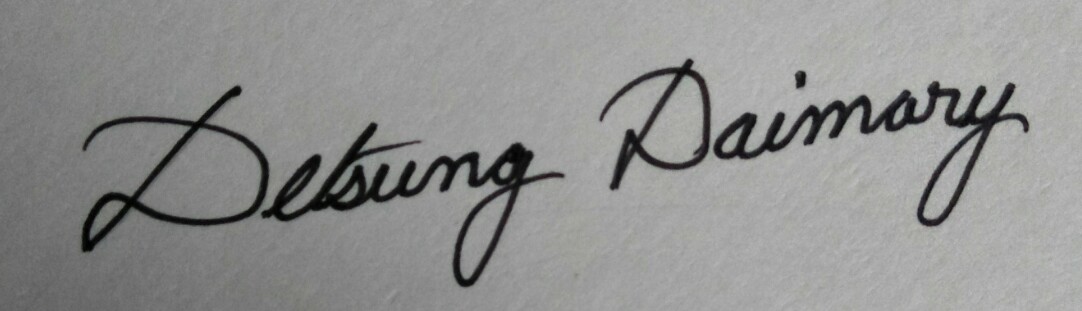 Detsung Daimary